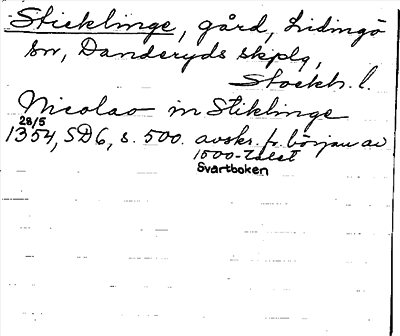 Sticklinge, gård, Lidingö
sn, Danderyds skplg,
Stockh. l.
Nicolao in Stiklinge
28/5
1354, SD6, s. 500. avskr. fr. början av
1500-talet
Svartboken